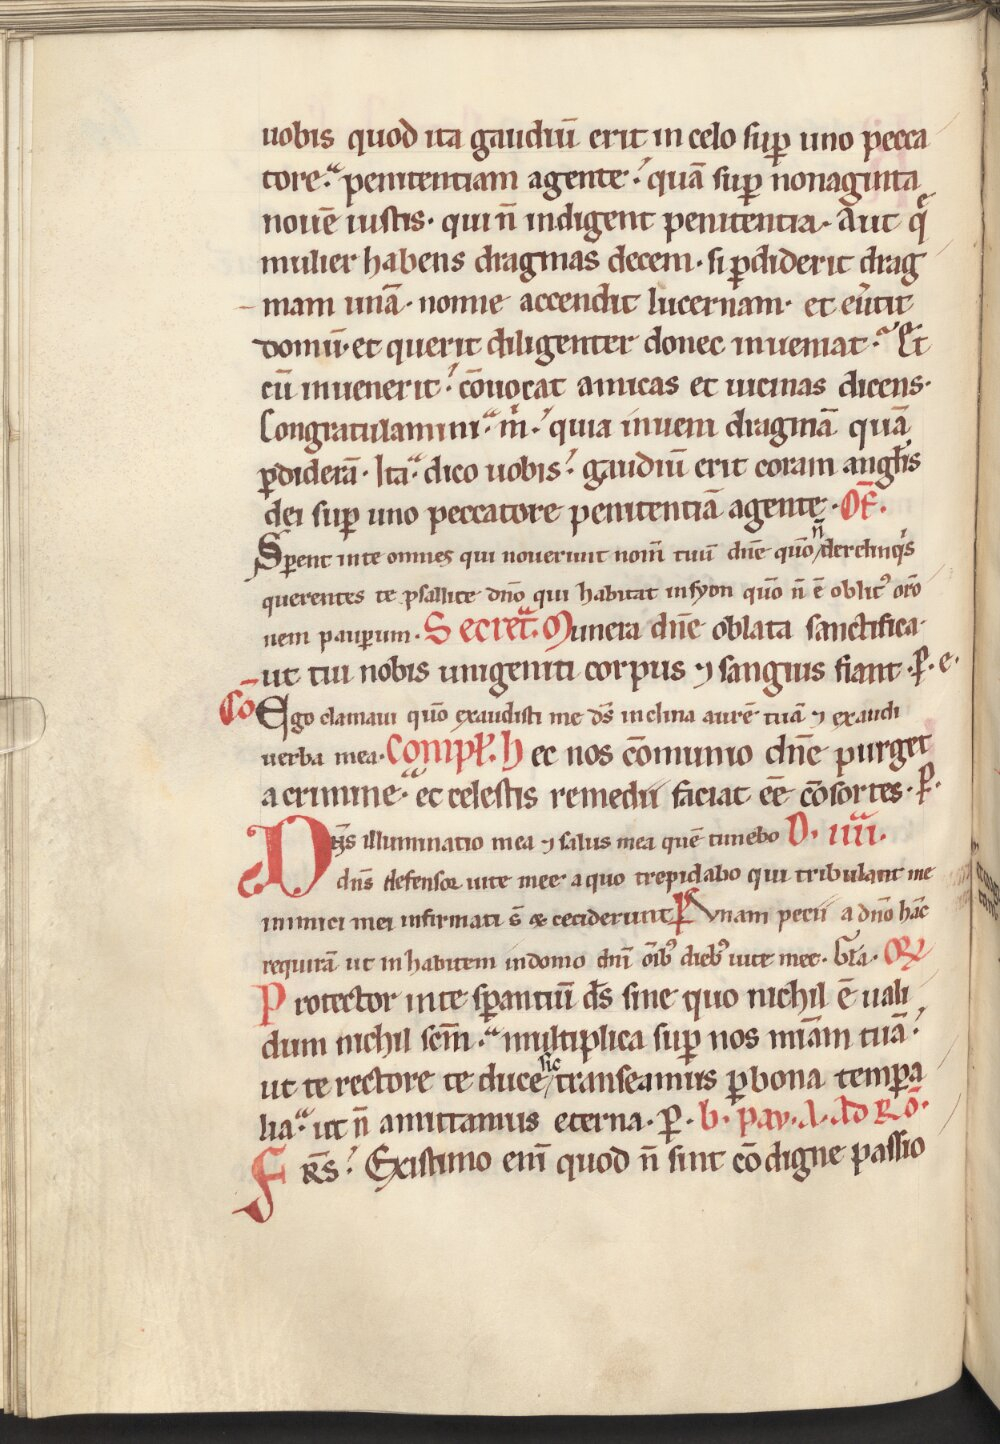 uobis quod ita gaudiū erit in celo suꝑ uno pecca
tore. penitentiam agente. quā suꝑ nonaginta
nouē iustis. qui n̄ indigent penitentia. Aut q̄
mulier habens dragmas decem. si ꝑdiderit drag
mam unā. nonne accendit lucernam. et eu̾tit
domū. et querit diligenter donec inueniat. Et
cū inuenerit. cōuocat amicas et uicinas dicens.
Congratulamini. m̊. quia inueni dragmā quā
ꝑdiderā. Ita. dico uobis. gaudiū erit coram angl̄is
dei suꝑ uno peccatore penitentiā agente. Of̄.
Sꝑent in te omnes qui nouerunt nom̄ tuū dn̄e quō n̄ derelinq̇s
querentes te psallite dn̄o qui habitat in syon quō n̄ ē oblit⁹ orō
nem pauꝑum. Secret̄. Munera dn̄e oblata sanctifica.
ut tui nobis unigeniti corpus ⁊ sanguis fiant. p̄. e.
Cō Ego clamaui quō exaudisti me ds̄ inclina aurē tuā ⁊ exaudi
uerba mea. Compl̄. Hec nos cōmunio dn̄e purget
a crimine. et celestis remedii faciat eē cōsortes. p̄.
Dn̄s illuminatio mea ⁊ salus mea quē timebo D. iiii.
dn̄s defensor uite mee a quo trepidabo qui tribulant me
inimici mei infirmati s̄ & ceciderunt P̄s Vnam pecii a dn̄o hāc
requirā ut inhabitem in domo dn̄i ōib⁹ dieb⁹ uite mee. Gl̄a. Or̄
Protector in te sꝑantiū ds̄ sine quo nichil ē uali
dum nichil scm̄. multiplica suꝑ nos mīam tuā.
ut te rectore te duce sic transeamus ꝑ bona tempa
lia. ut n̄ amittamus eterna. p̄. b. pav. A. Ad Rō.
Frs̄. Existimo eni̅ quod n̄ sint cōdigne passio